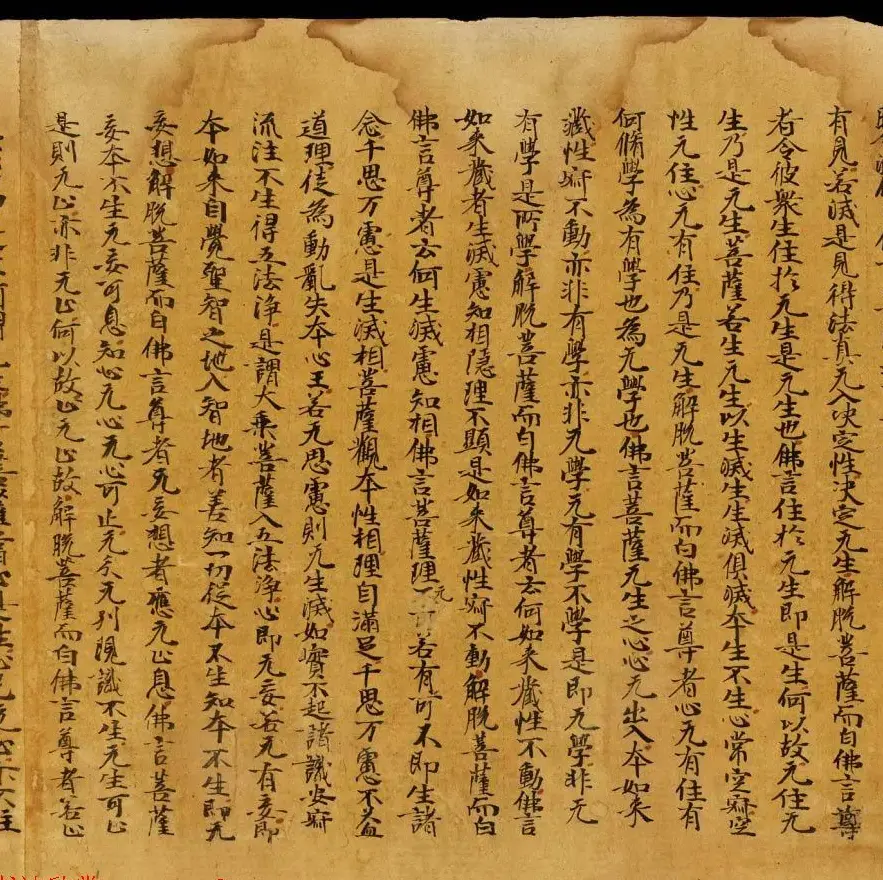 有見若滅是見得法真无入決定性決定无生解脫菩薩而白佛言尊
者令彼衆生住於无生是无生也佛言住於无生即是生何以故无住无
生乃是无生菩薩若生无生以生滅生生滅俱滅本生不生心常空寂空
性无住心无有住乃是无生解脫菩薩而白佛言尊者心无有住有
何脩學為有學也為无學也佛言菩薩无生之心心无出入本如来
藏性寂不動亦非有學亦非无學无有學不學是即无學非无
有學是所學解脫菩薩而白佛言尊者云何如来藏性不動佛言
如来藏者生滅慮知相隱理不顯是如来藏性寂不動解脫菩薩而白
佛言尊者云何生滅慮知相佛言菩薩理无可若有可不即生諸
念千思万慮是生滅相菩薩觀本性相理自滿足千思万慮不益
道理徒為動亂失本心王若无思慮則无生滅如實不起諸識安寂
流注不生得五法淨是謂大乘菩薩入五法淨心即无妄若无有妄即
本如来自覺聖智之地入智地者善知一切從本不生知本不生即无
妄想解脫菩薩而白佛言尊者无妄想者應无止息佛言菩薩
妄本不生无妄可息知心无心无心可止无分无別現識不生无生可止
是則无止亦非无止何以故止无止故解脫菩薩而白佛言尊者若止